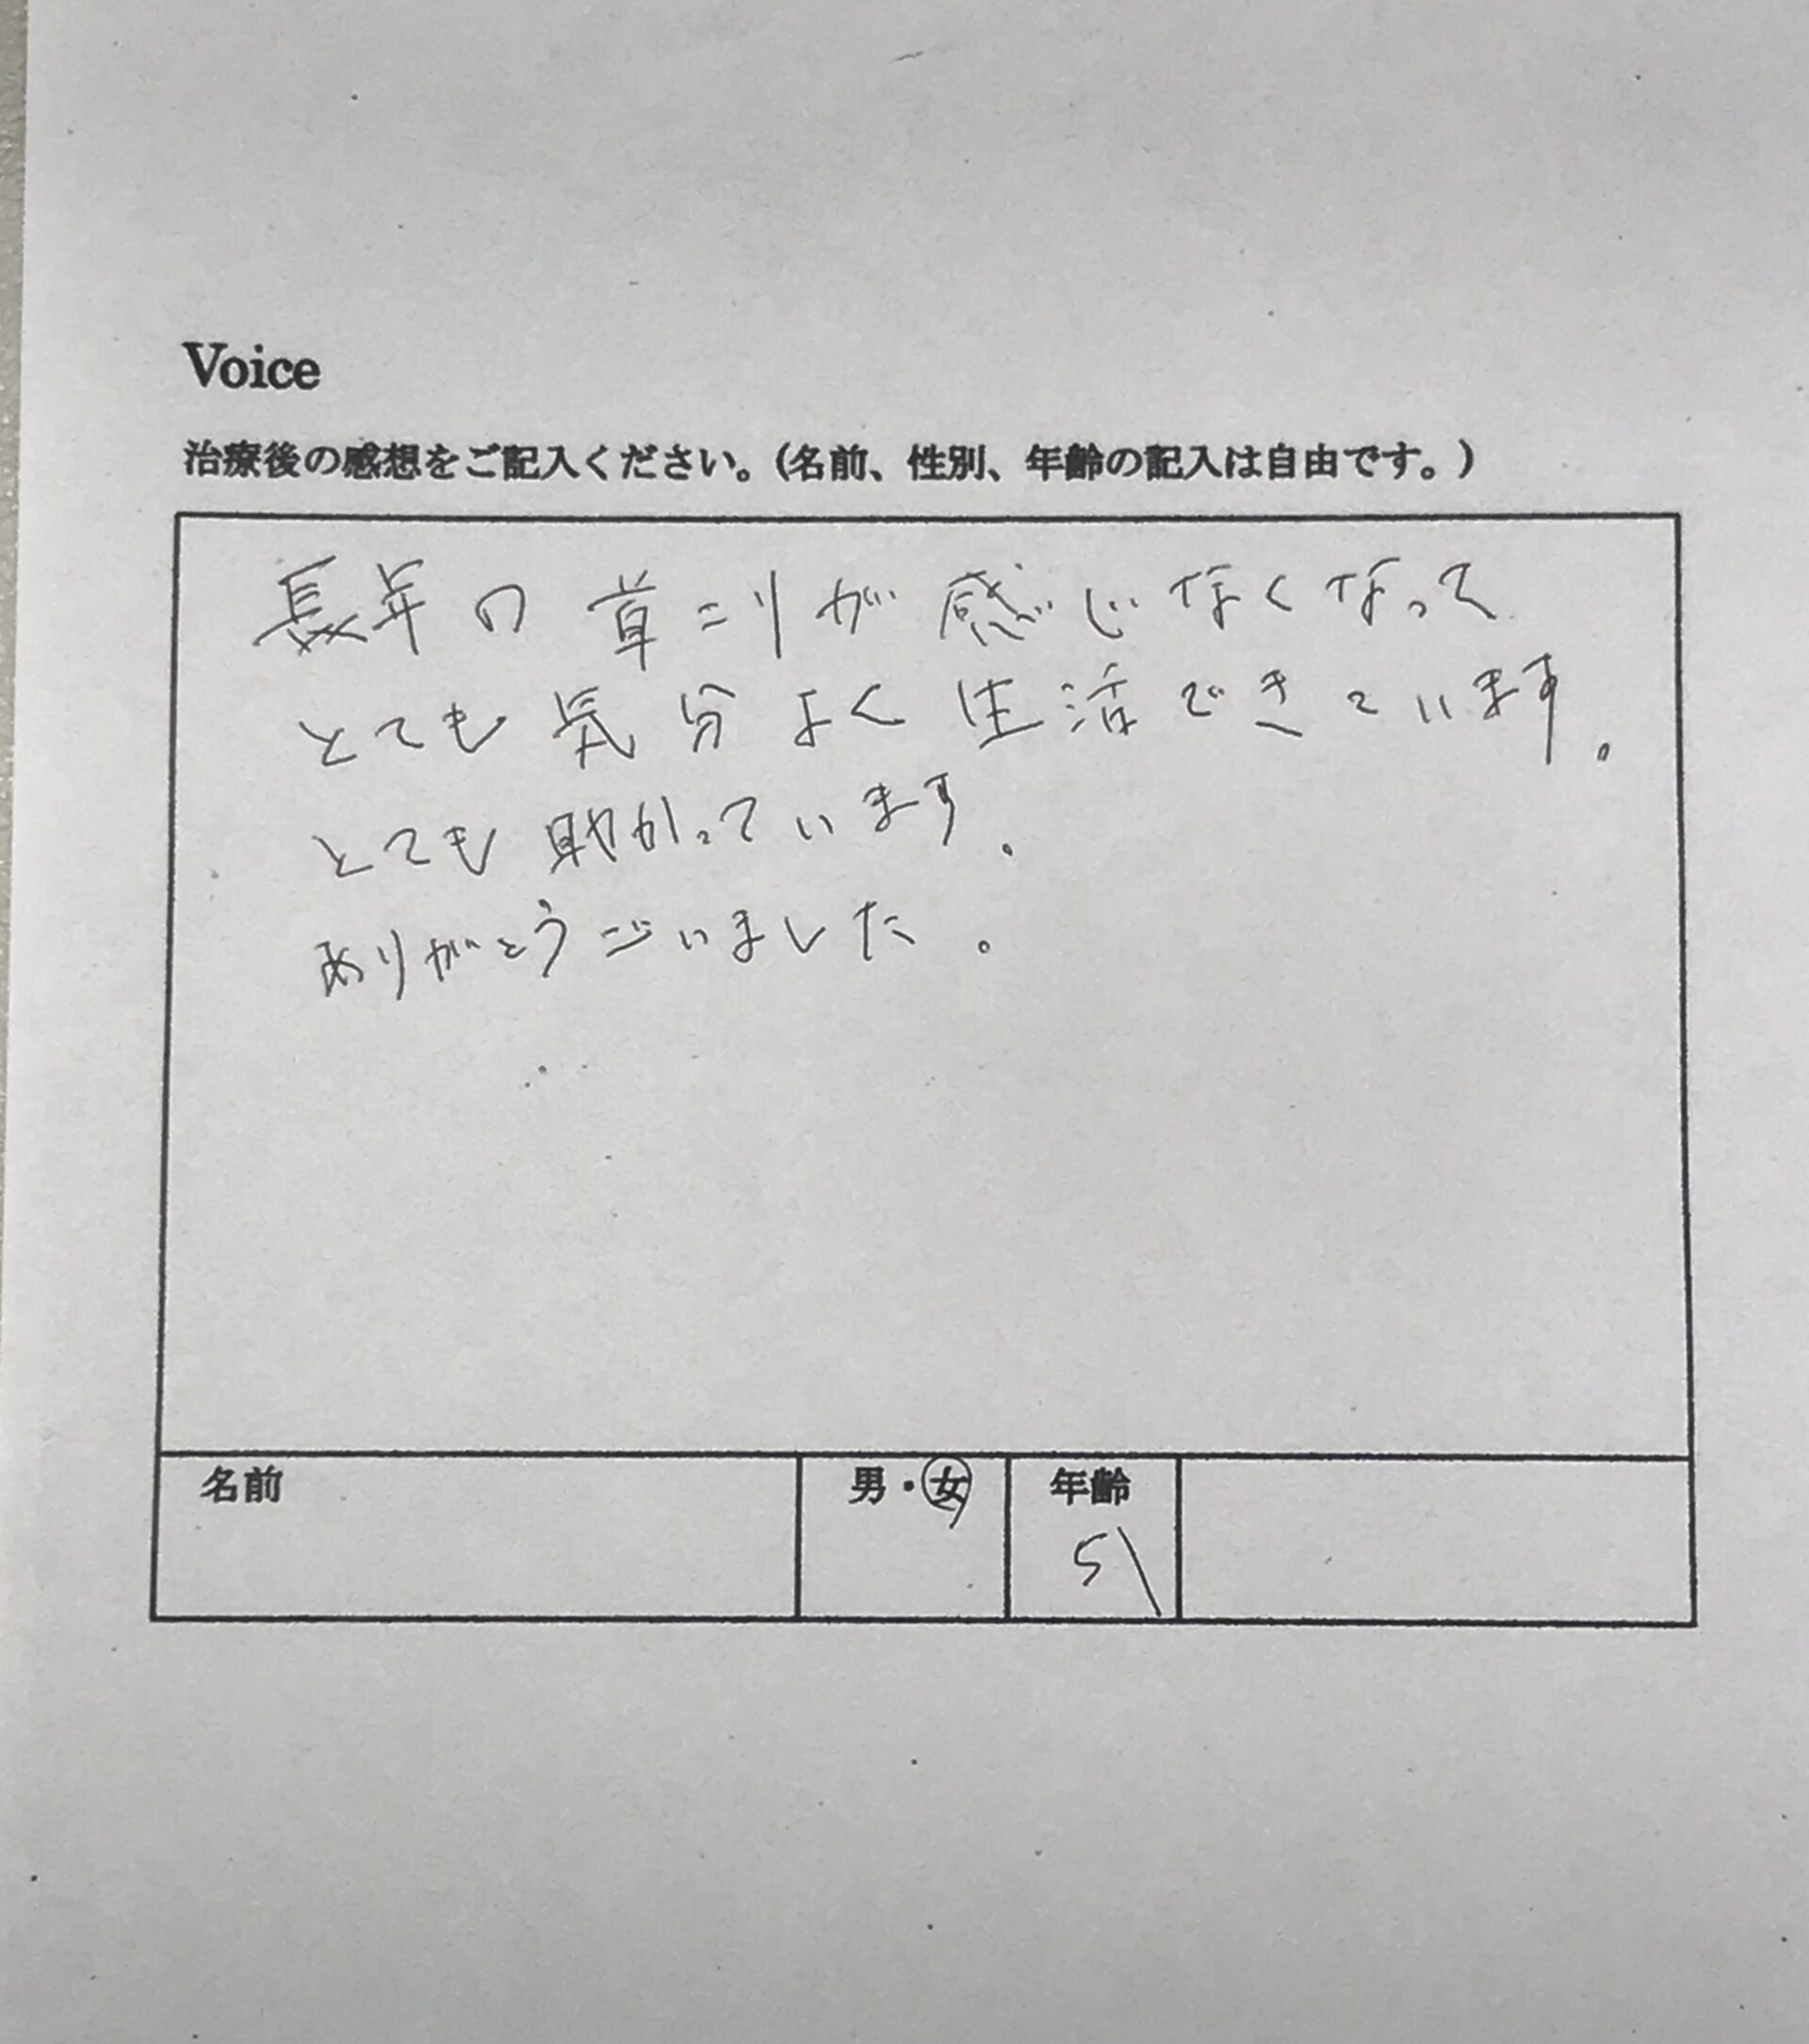 Voice
治療後の感想をご記入ください。(名前、性別、年齢の記入は自由です。)
長年の草こりが感じなくなって
とても気分よく生活できています。
とても助かっています。
ありがとうごいました。
名前 男・女 年齢
51